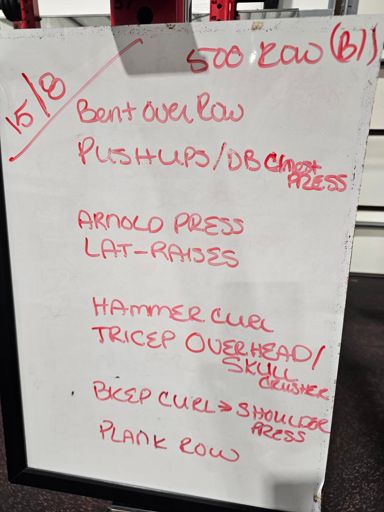 15/8
500 ROW (B7)
Bent over Row
PUSHUPS/DB Chest
PRESS
ARNOLD PRESS
LAT-RAISES
HAMMER CURL
TRICEP OVERHEAD/
SKULL
CRUSHER
BICEP CURL > SHOULDER
PRESS
PLANK ROW